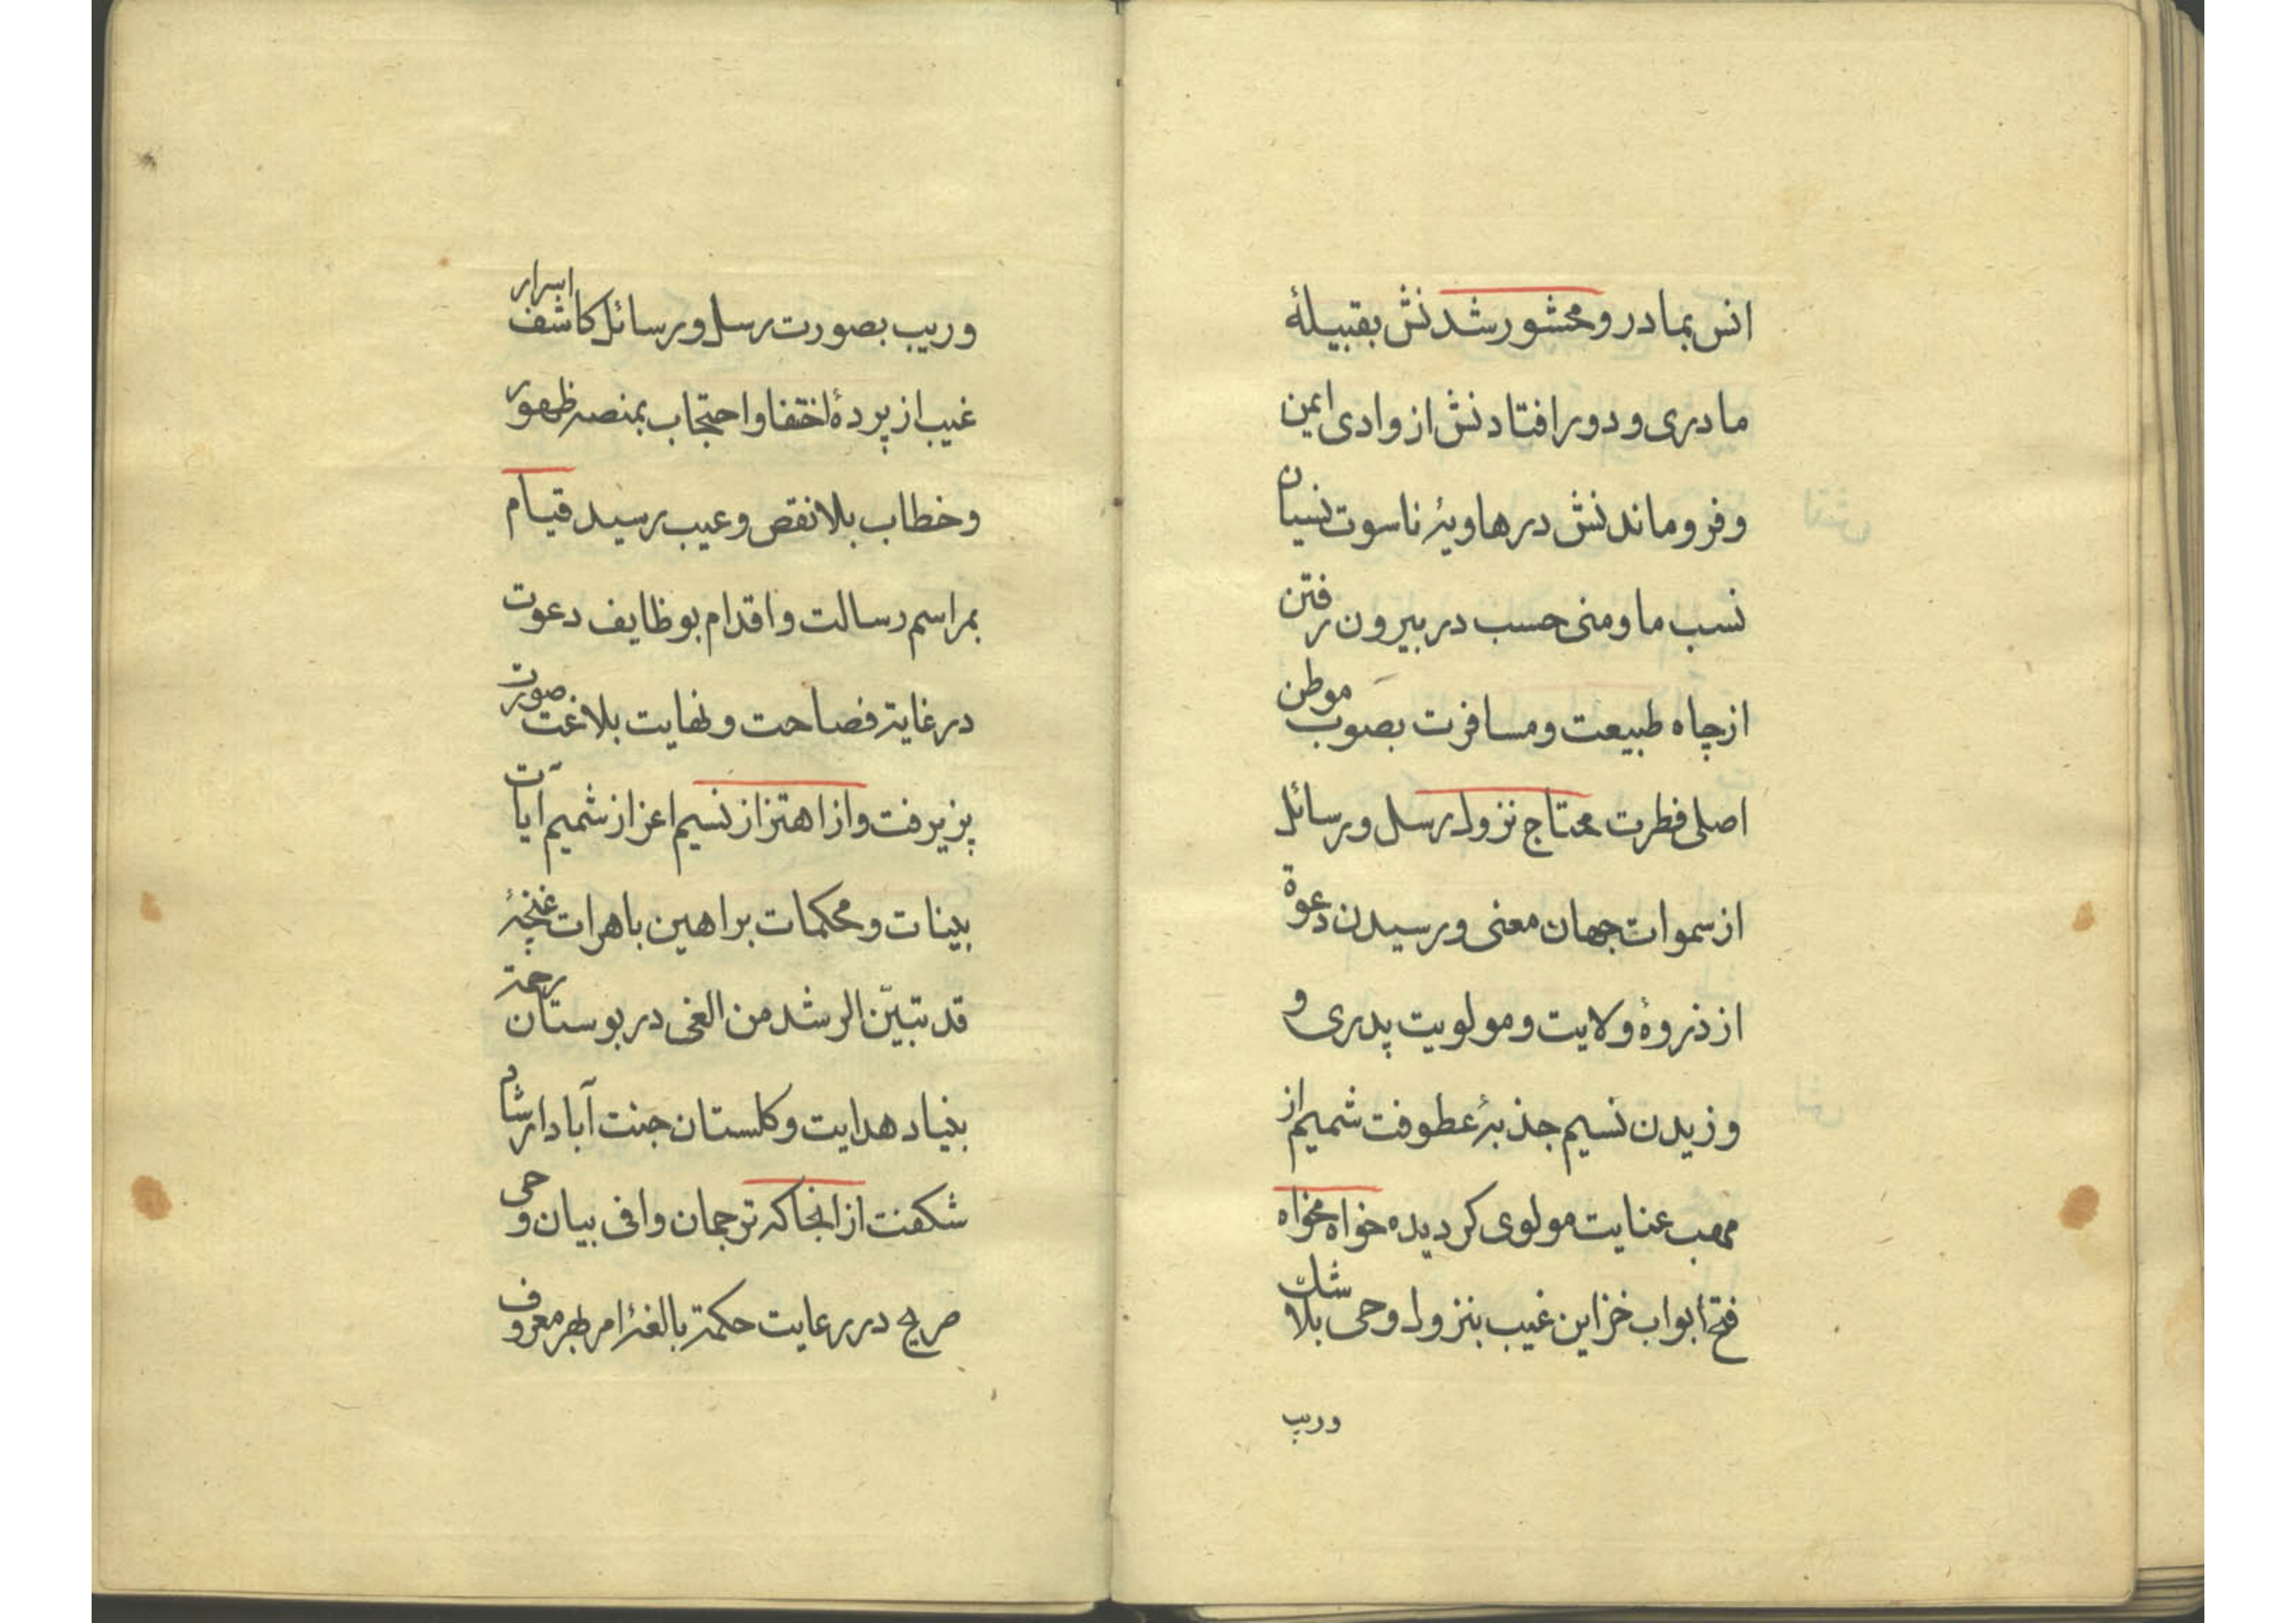 انس بمادر و محشور شدنش بقبیلهٔ
مادری و دور افتادنش از وادی ایمن
و فرو ماندنش در هاویهٔ ناسوت نسیان
نسب ما و منی حسب در بیرون رفتن
از چاه طبیعت و مسافرت بصوب موطن
اصلی فطرت محتاج نزول رسل و رسائل
از سموات جهان معنی و رسیدن دعوة
از ذروهٔ ولایت و مولویت پدری و
وزیدن نسیم جذبهٔ عطوفت شمیم از
مهب عنایت مولوی کردیده خواه مخواه
فتح ابواب خزاین غیب بنزول وحی بلا شک
وریب
وریب بصورت رسل و رسائل کاشف اسرار
غیب از پردهٔ اختفا و احتجاب بمنصه ظهور
و خطاب بلا نقص و عیب رسید قیام
بمراسم رسالت و اقدام بوظایف دعوت
در غایة فصاحت و نهایت بلاغت صورت
پزیرفت و از اهتزاز نسیم اعزاز شمیم آیات
بینات و محکمات براهین باهرات غنچهٔ
قد تبیّن الرشد من الغی در بوستان رحمة
بنیاد هدایت و کلستان جنت آباد ارشاد
شکفت از انجا که ترجمان وافی بیان وحی
صریح در رعایت حکمة بالغهٔ امر طهر معروف